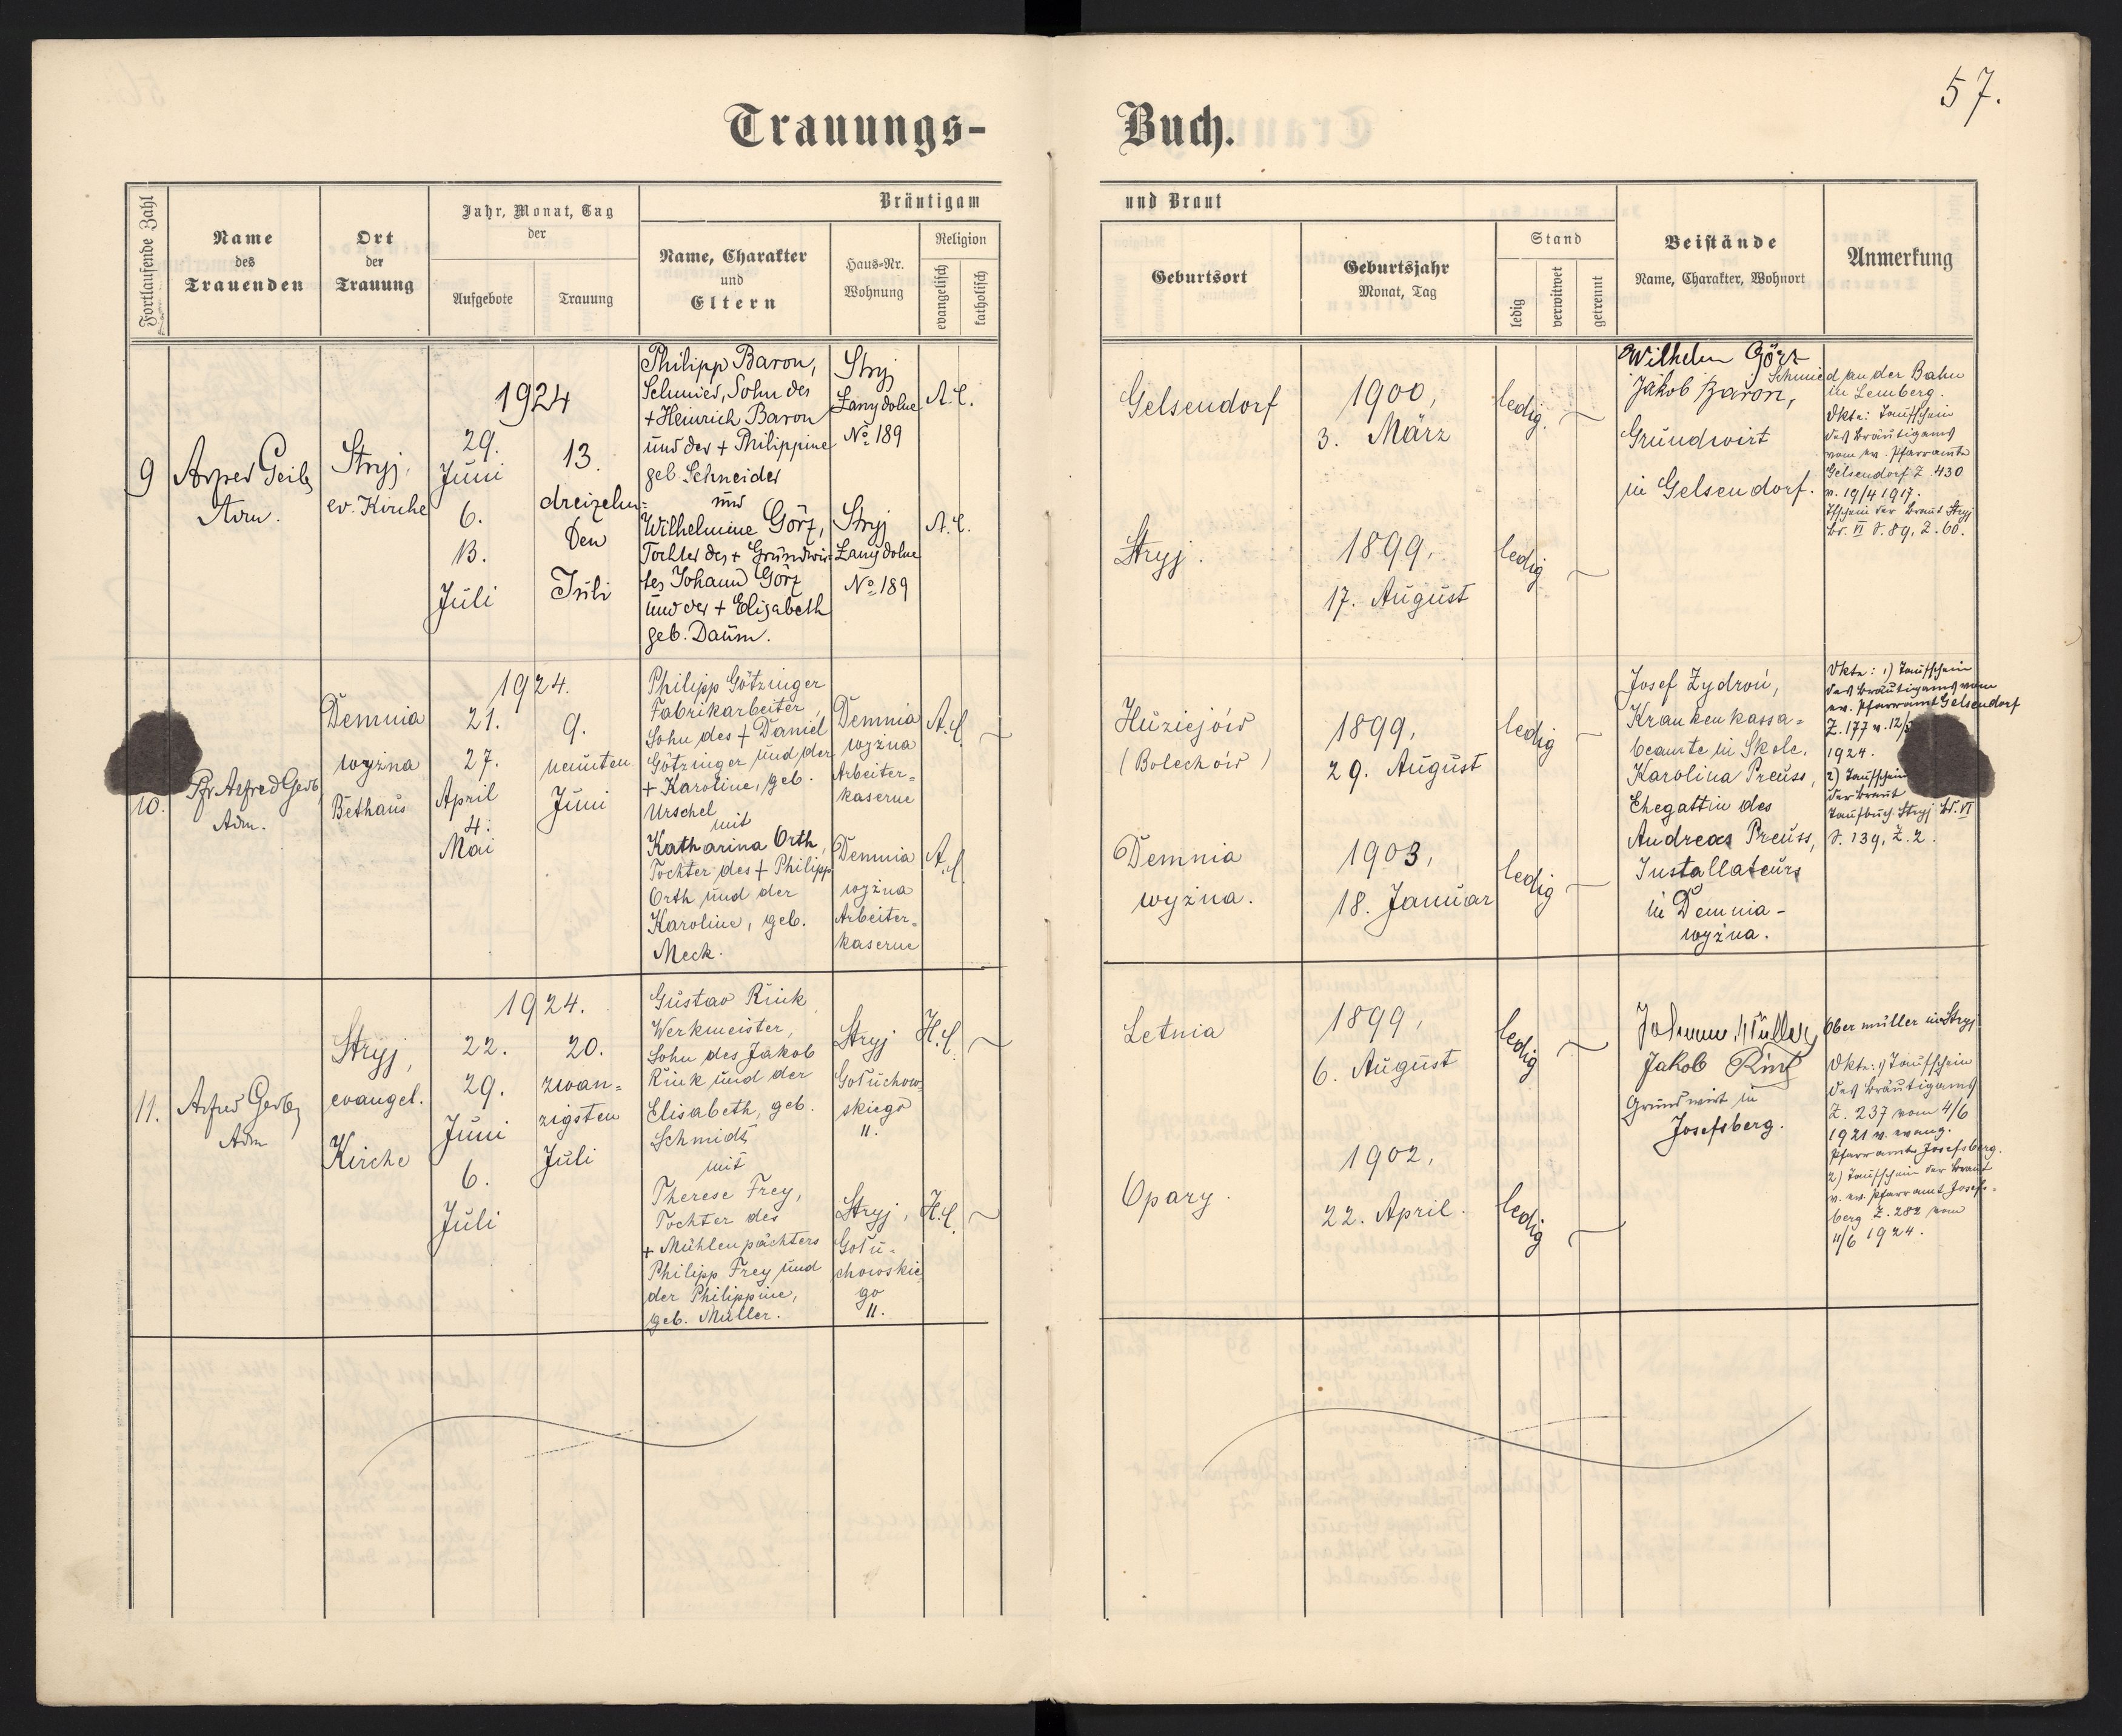 57.
Trauungs-
Buch.
Fortlaufende Zahl
Name
des
Trauenden
Ort
der
Trauung
Jahr, Monat, Tag
der
Aufgebote
Trauung
Bräutigam
Name, Charakter
und
Eltern
Haus-Nr.
Wohnung
Religion
evangelisch
katholisch
und Braut
Geburtsort
Geburtsjahr
Monat, Tag
Stand
ledig
verwitwet
getrennt
Beistände
Name, Charakter, Wohnort
Anmerkung
9
Adm.
Stryj,
ev. Kirche
1924
29.
Juni
6.
13.
Juli
13.
dreizehn-
Den
Juli
Philipp Baron,
Schmied, Sohn des
+ Heinrich Baron
und der + Philippine
geb. Schneider
und
Wilhelmine Görz,
Tochter des + Grundwir-
tes Johann Görz
und der + Elisabeth
geb. Daum.
Stryj
Łany dolne
No 189
Stryj
Łany dolne
No 189
A.C.
A.C.
Gelsendorf
Stryj.
1900,
3. März
1899,
17. August
ledig
ledig
Wilhelm Görz
Schmied an der Bahn
in Lemberg.
Jakob Baron,
Grundwirt
in Gelsendorf.
Akte: Taufschein
des Bräutigams
vom ev. Pfarramte
Gelsendorf Z. 430
v. 19/4 1917.
Tfschein der Braut Stryj
Bd. VI S. 89, Z. 60.
10.
Pfr Alfred Gerb
Adm.
Demnia
wyżna
Bethaus
1924.
21.
27.
April
4.
Mai
9.
neunten
Juni
Philipp Götzinger
Fabrikarbeiter,
Sohn des + Daniel
Götzinger und der
+ Karoline, geb.
Urschel
mit
Katharina Orth,
Tochter des + Philipp
Orth und der
Karoline, geb.
Meck.
Demnia
wyżna
Arbeiter-
kaserne
Demnia
wyżna
Arbeiter-
kaserne
A.C.
A.C.
Huziejów
(Bolechów)
Demnia
wyżna.
1899,
29. August
1903,
18. Januar
ledig
ledig
Josef Zydroń,
Krankenkassa-
beamte in Skole.
Karolina Preuss,
Ehegattin des
Andreas Preuss,
Installateurs
in Demnia-
wyżna.
Akte: 1) Taufschein
des Bräutigams vom
ev. Pfarramt Gelsendorf
Z. 177 v. 12/
1924.
2) Taufschein
der Braut
Taufbuch Stryj Bd. VI
S. 139, Z. 2.
11.
Alfred Gerb
Adm
Stryj,
evangel.
Kirche
1924.
22.
29.
Juni
6.
Juli
20.
zwan-
zigsten
Juli
Gustav Rink,
Werkmeister,
Sohn des Jakob
Rink und der
Elisabeth, geb.
Schmidt,
mit
Therese Frey,
Tochter des
+ Mühlenpächters
Philipp Frey und
der Philippine,
geb. Müller.
Stryj
Gołuchow-
skiego
11.
Stryj,
Gołu-
chowskie
go
11.
H.C.
H.C.
Letnia
Opary.
1899,
6. August
1902,
22. April.
ledig
ledig
Johann Müller, Obermüller in Stryj
Jakob Rink
Grundwirt in
Josefsberg.
Akte: 1) Taufschein
des Bräutigams
Z. 237 vom 4/6
1921 v. evang.
Pfarramte Josefsberg.
2) Taufschein der Braut
v. ev. Pfarramt Josefs-
berg Z. 282 vom
11/6 1924.